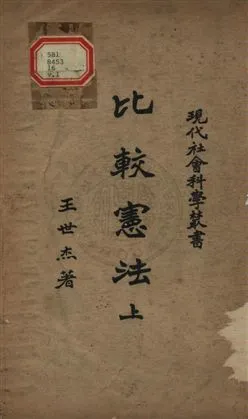 現代社會科學叢書
比較憲法上
王世杰著
581
8453
16
v.1